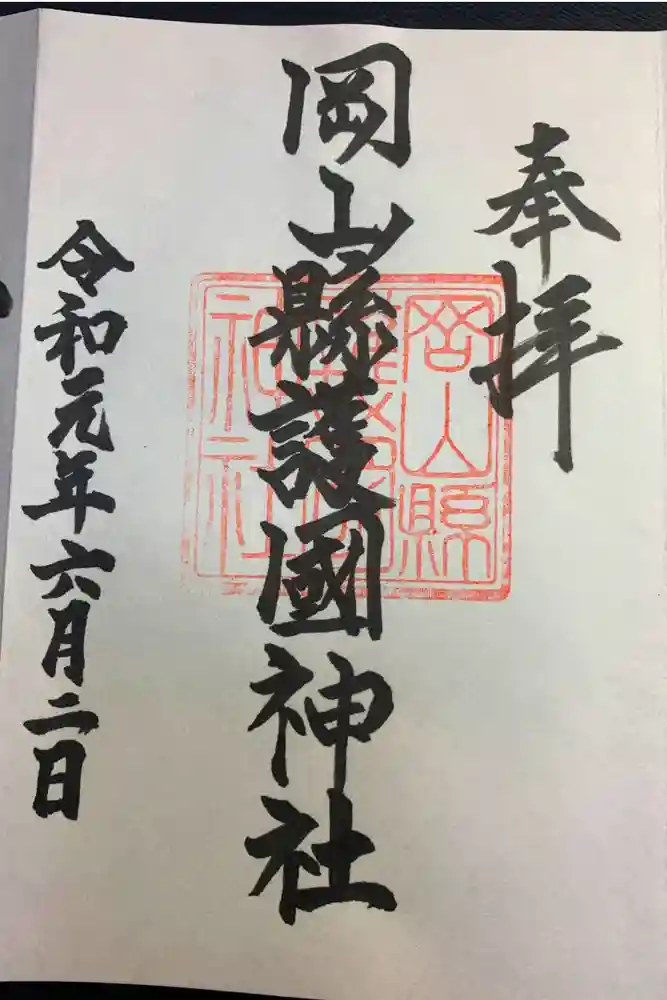 奉拝
岡山縣護國神社
岡山縣護國神社
令和元年六月二日